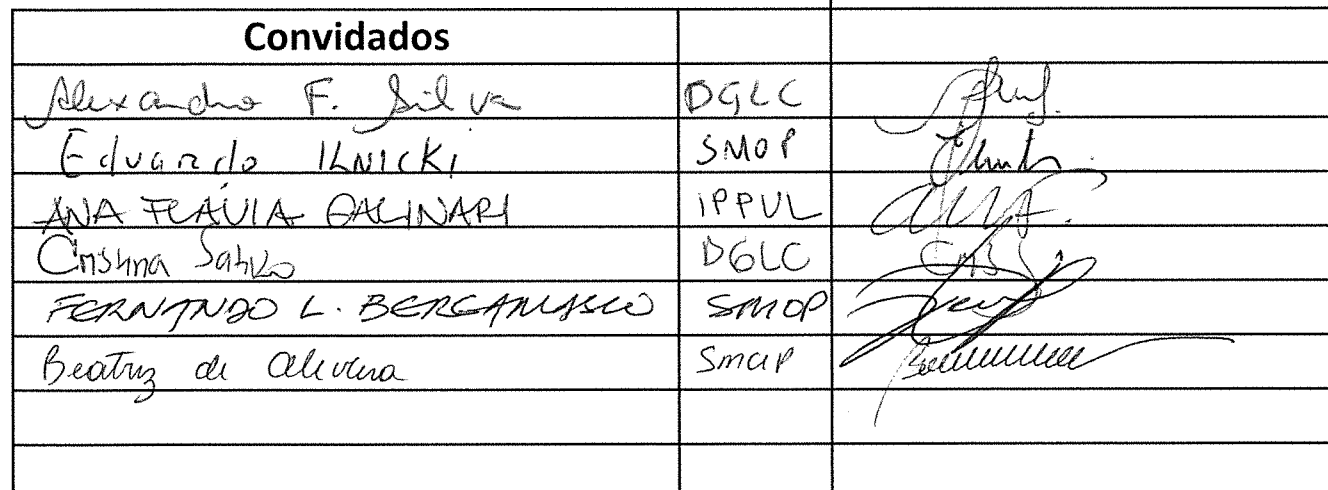 Convidados
Alexandre F. Silva DGLC
Eduardo ILNICKI SMOP
ANA FLÁVIA GALINARI IPPUL
Cristina Satiko DGLC
FERNANDO L. BERGAMASCO SMOP
Beatriz de Oliveira SMOP